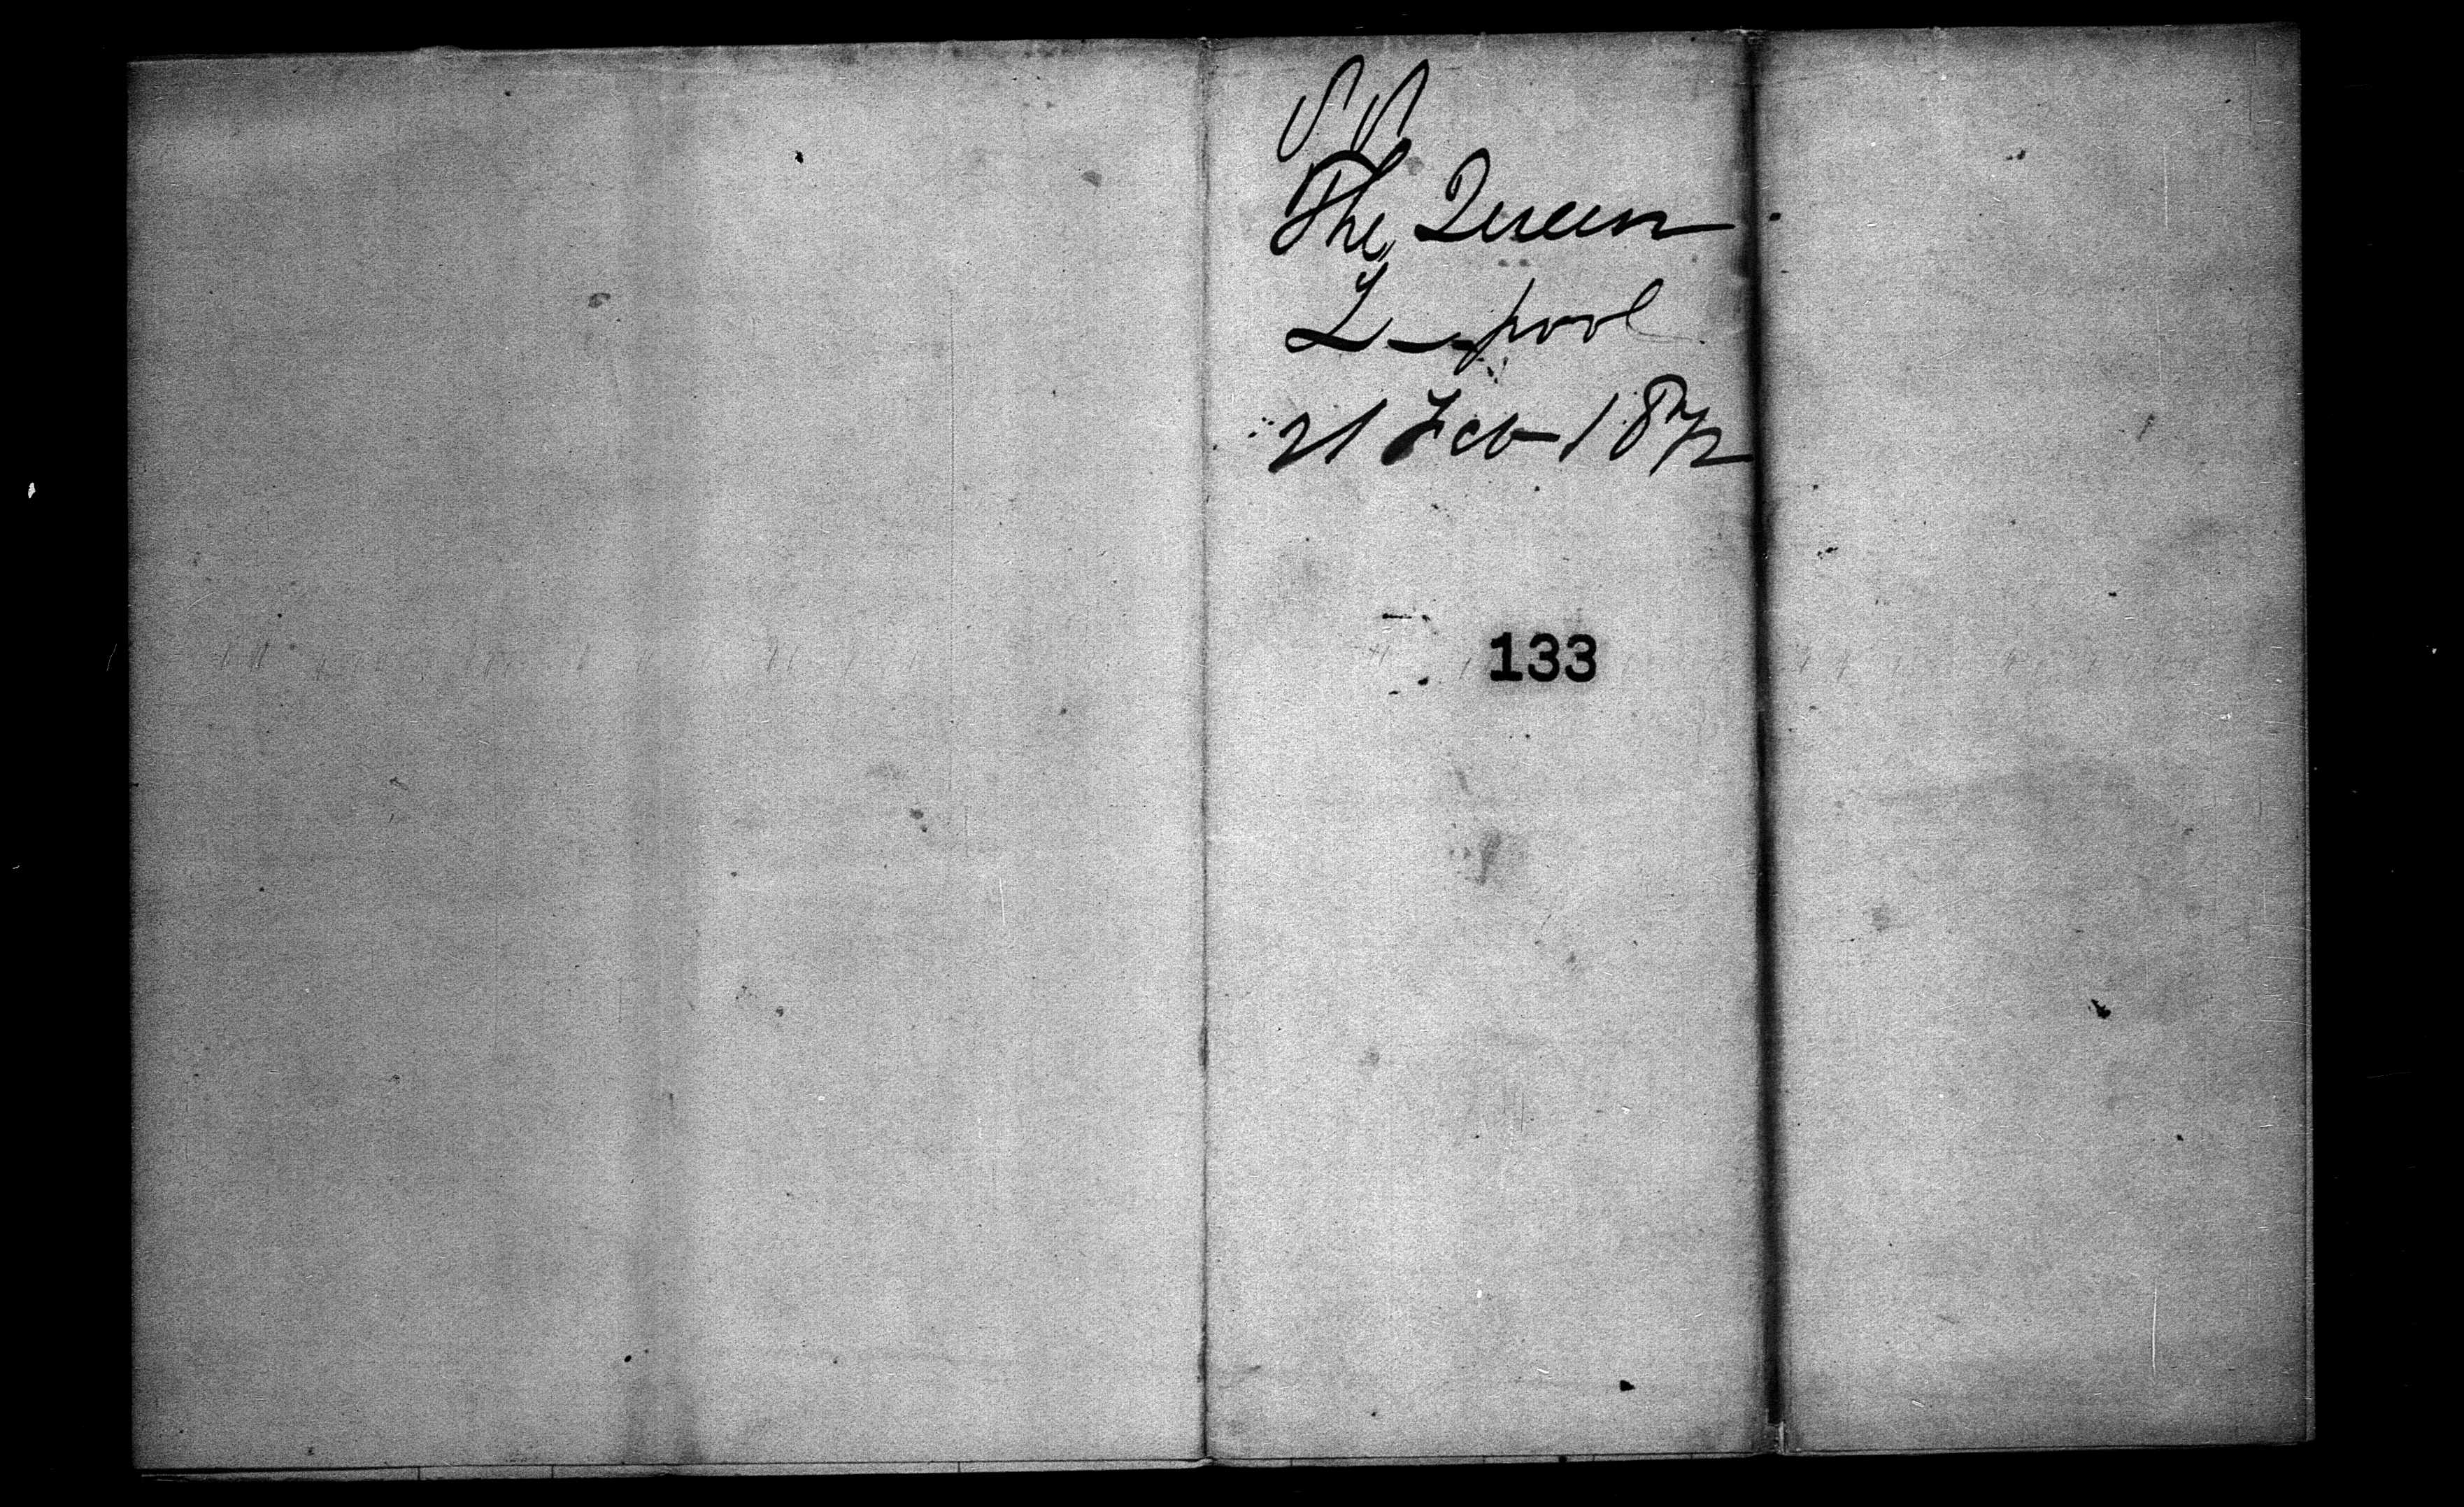 SS
The Queen
L--pool
21 Feb 1872
133